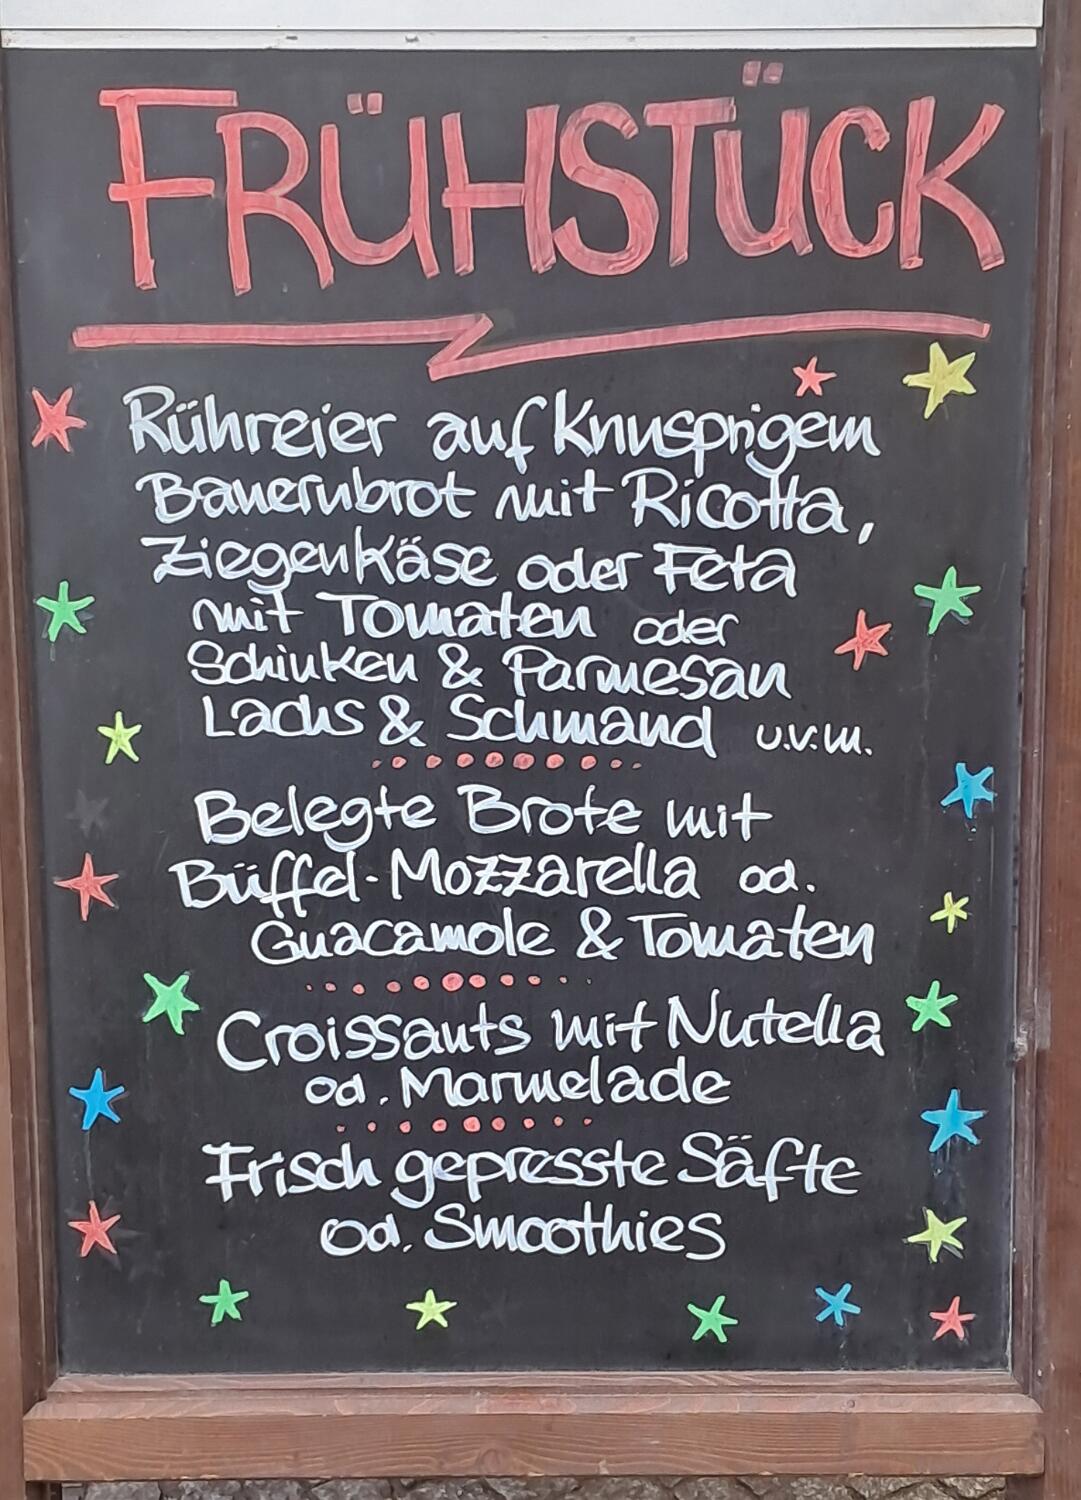 FRÜHSTÜCK
Rühreier auf knusprigem
Bauernbrot mit Ricotta,
Ziegenkäse oder Feta
mit Tomaten oder
Schinken & Parmesan
Lachs & Schmand u.v.m.
Belegte Brote mit
Büffel-Mozzarella od.
Guacamole & Tomaten
Croissants mit Nutella
od. Marmelade
Frisch gepresste Säfte
od. Smoothies